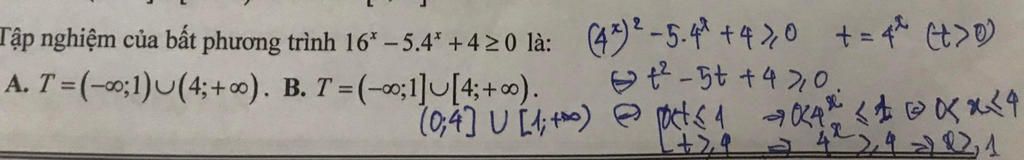 Tập nghiệm của bất phương trình 16^x − 5.4^x + 4 ≥ 0 là:
A. T = (−∞;1)∪(4;+∞). B. T = (−∞;1]∪[4;+∞).
(4^x)^2 − 5.4^x + 4 ≥ 0 t = 4^x (t>0)
⇔ t^2 − 5t + 4 ≥ 0.
(0;4] ∪ [1;+∞) ⇔ [0<t≤1 → 0<4^x ≤ 1 ⇔ 0<x≤4
t≥4 → 4^x ≥ 4 → x≥1